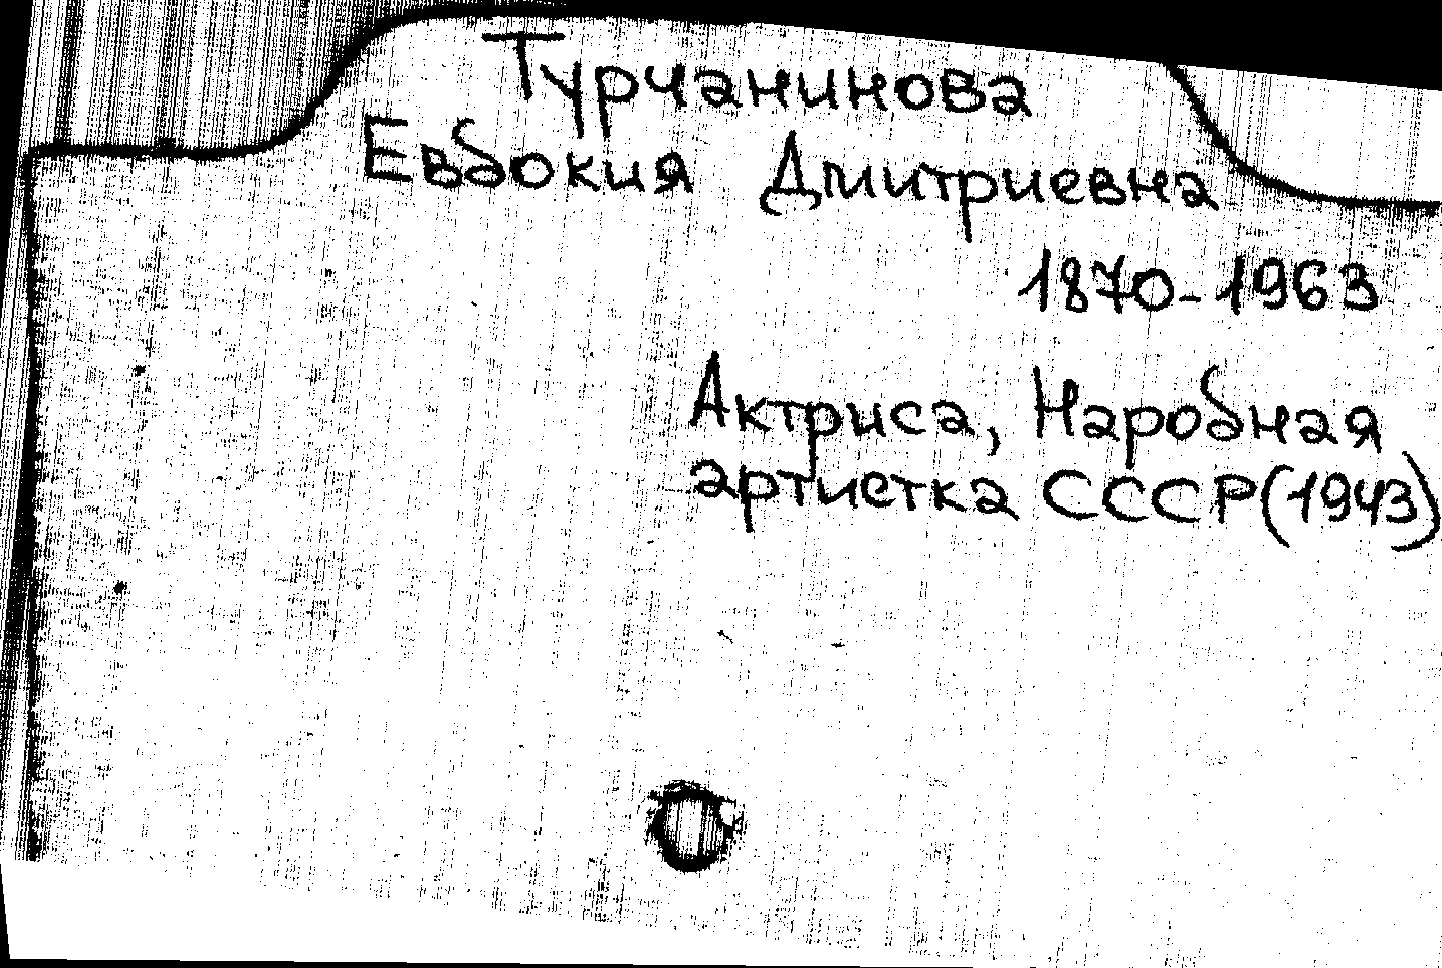 Турчанинова
Евдокия Дмитриевна
1870-1963
Актриса, Народная
артистка СССР(1943)